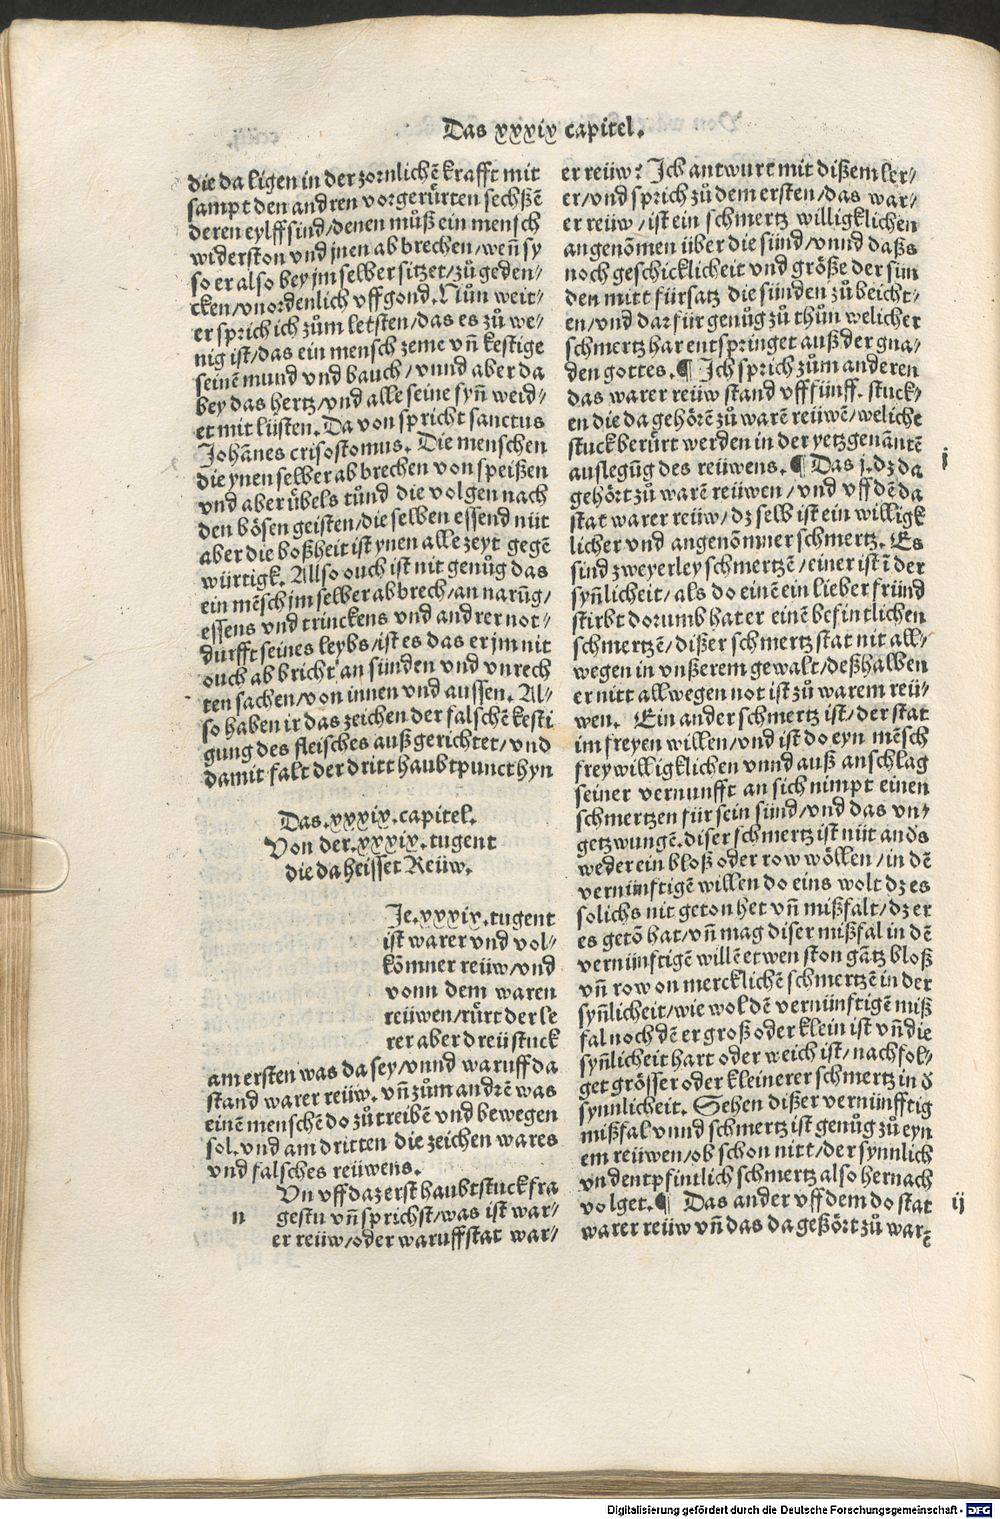 Das xxxix capitel.
die da ligen in der zornlichē krafft mit
sampt den andren vorgerürten sechßē
deren eylff sind/denen můß ein mensch
widerston vnd jnen ab brechen/wen̄ sy
so er also bey jm selber sitzet/zů geden/
cken/vnordenlich vff gond. Nůn weit/
er sprich ich zům letsten/das es zů we/
nig ist/das ein mensch zeme vn̄ kestige
seinē mund vnd bauch/vnnd aber da
bey das hertz/vnd alle seine syn̄ weid/
et mit lüsten. Da von spricht sanctus
Johānes crisostomus. Die menschen
die ynen selber ab brechen von speißen
vnd aber übels tůnd die volgen nach
den bösen geisten/die selben essend nüt
aber die boßheit ist ynen alle zeyt gegē
würtigk. Allso ouch ist nit genůg das
ein mēsch jm selber ab brech/an narūg/
essens vnd trinckens vnd andrer not/
durfft seines leybs/ist es das er jm nit
ouch ab bricht an sünden vnd vnrech
ten sachen/von innen vnd aussen. Al/
so haben ir das zeichen der falschē kesti
gung des fleisches auß gerichtet/vnd
damit falt der dritt haubtpunct hyn
Das.xxxix.capitel.
Von der.xxxix.tugent
die da heisset Reüw.
Je.xxxix.tugent
ist warer vnd vol/
kōmner reüw/vnd
vonn dem waren
reüwen/rürt der le
rer aber dreü stuck
am ersten was da sey/vnnd waruff da
stand warer reüw. vn̄ zům andrē was
einē menschē do zů treibē vnd bewegen
sol.vnd am dritten die zeichen wares
vnd falsches reüwens.
Vn vff daz erst haubtstuck fra
n gestu vn̄ sprichst/was ist war/
er reüw/oder waruff stat war/
er reüw? Jch antwurt mit dißem ler/
er/vnd sprich zů dem ersten/das war/
er reüw/ist ein schmertz willigklichen
angenōmen über die sünd/vnnd daßs
noch geschicklicheit vnd größe der sün
den mitt fürsatz die sünden zů beicht/
en/vnd dar für genůg zů thůn welicher
schmertz har entspringet auß der gna/
den gottes.¶ Jch sprich zům anderen
das warer reüw stand vff fünff. stuck/
en die da gehörē zů warē reüwē/weliche
stuck berürt werden in der yetz genātē
auslegūg des reüwens.¶ Das j.dz da
gehört zů warē reüwen/vnd vff dē da
stat warer reüw/dz selb ist ein willigk
licher vnd angenōmner schmertz. Es
sind zweyerley schmertzē/einer ist ī der
syn̄licheit/als do einē ein lieber fründ
stirbt dorumb hat er einē befintlichen
schmertzē/dißer schmertz stat nit all/
wegen in vnßerem gewalt/deßhalben
er nitt allwegen not ist zů warem reü/
wen. Ein ander schmertz ist/der stat
im freyen willen/vnd ist do eyn mēsch
frey willigklichen vnnd auß anschlag
seiner vernunfft an sich nimpt einen
schmertzen für sein sünd/vnd das vn/
getzwungē.diser schmertz ist nüt anďs
weder ein bloß oder row wöllen/in dē
vernünftigē willen do eins wolt dz es
solichs nit geton het vn̄ mißfalt/dz er
es getō hat/vn̄ mag diser mißfal in dē
vernünftigē willē etwen ston gātz bloß
vn̄ row on mercklichē schmertzē in der
syn̄licheit/wie wol dē vernünftigē miß
fal noch dē er groß oder klein ist vn̄ die
syn̄licheit hart oder weich ist/nach fol/
get grösser oder kleinerer schmertz in ď
synnlicheit. Sehen dißer vernünfftig
mißfal vnnd schmertz ist genůg zů eyn
em reüwen/ob schon nitt/der synnlich
vnd entpfintlich schmertz also hernach
volget.¶ Das ander vff dem do stat
warer reüw vn̄ das da geßört zů warē
i
ij
Digitalisierung gefördert durch die Deutsche Forschungsgemeinschaft - DFG